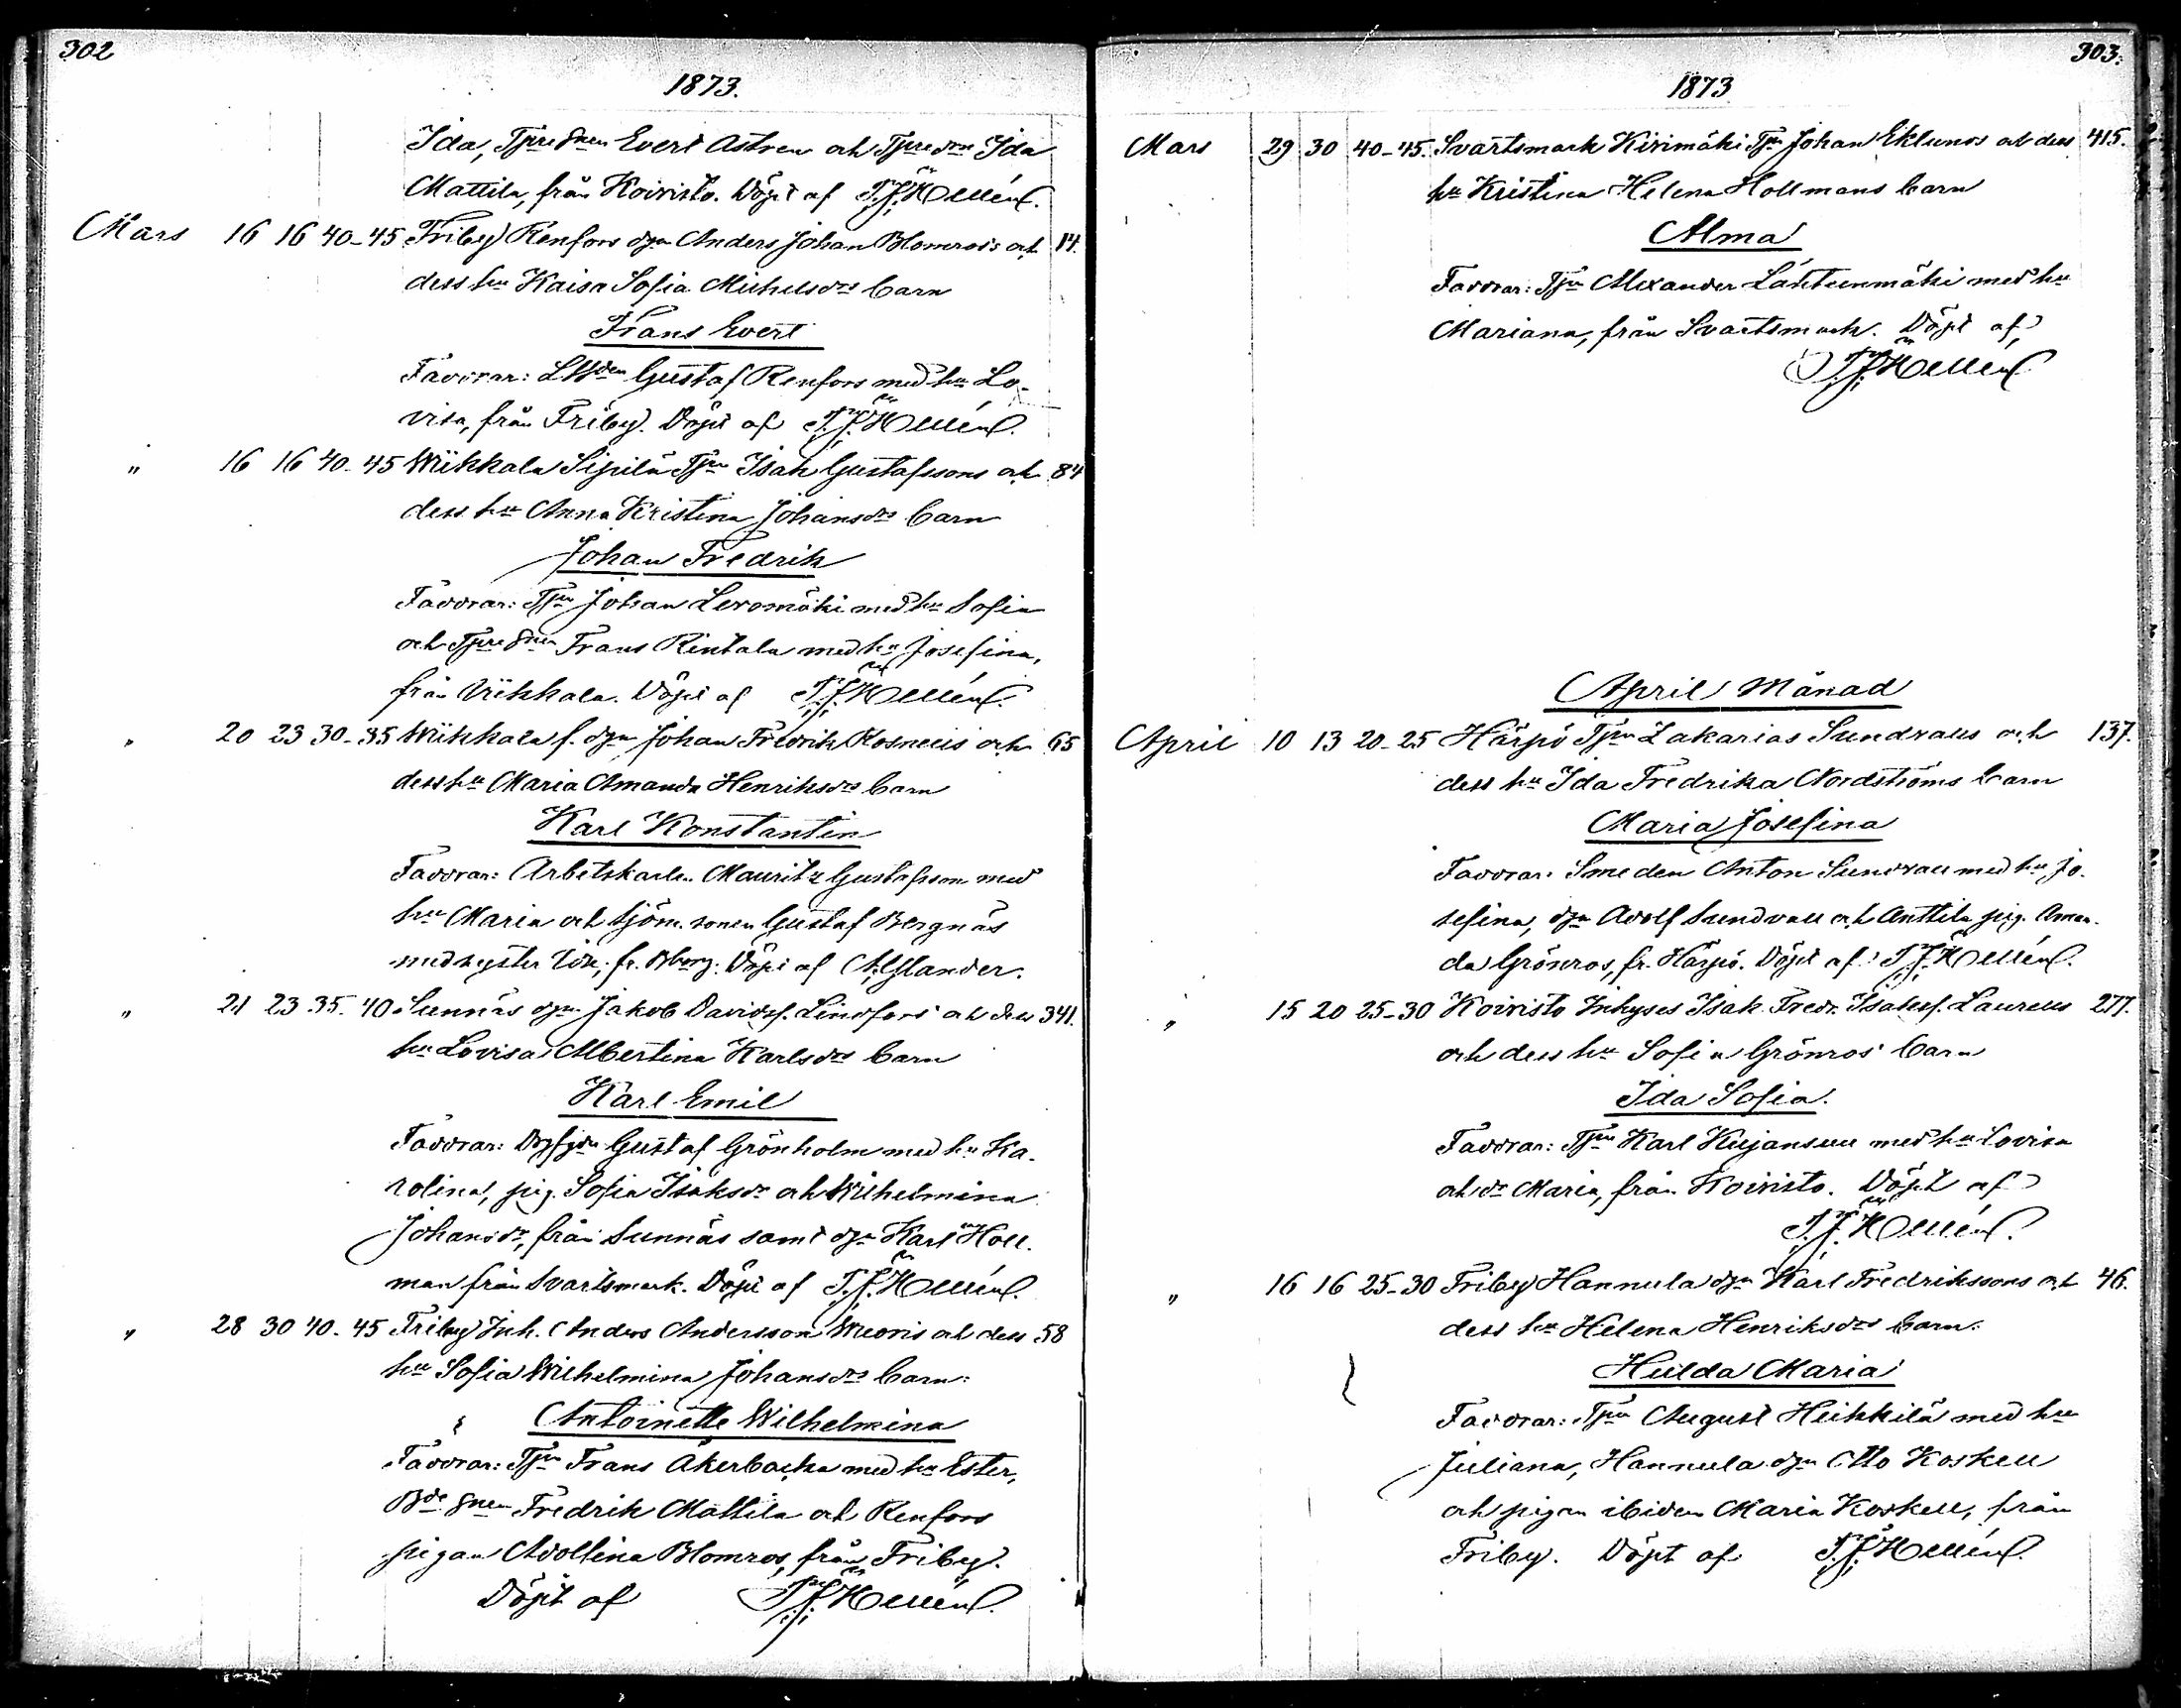 302
1873.
Ida, Tjuredrn Evert Astren och Tjuredrn Ida
Mattila, från Koivisto. Döpt af T. J. Hollmén.
Mars 16 16 40-45 Friby Renfors dgn Anders Johan Blomros's och 14.
dess hu Kaisa Sofia Michelsdrs barn
Frans Evert
Faddrar: Gustaf Renfors med hu Lo-
visa, från Friby. Döpt af
" 16 16 40-45 Wiikkala Sipilä Tjn Isak Gustafssons och 84
dess hu Anna Kristina Johansdrs barn
Johan Fredrik
Faddrar: Tjn Johan Levomäki med hu Sofia
och Frans Rintala med hu Josefina,
från Viikkala. Döpt af
" 20 23 30-35 Wiikkala f. dgn Johan Fredrik Rosnells och 65
dess hu Maria Amanda Henriksdrs barn
Karl Konstantin
Faddrar: Arbetskarlen Mauritz Gustafsson med
hu Maria och sjöm. sonen Gustaf Bergnäs
med syster fr. Bborg. Döpt af
" 21 23 35-40 Sunnäs dgn Jakob Davidsf. Lindfors och dess 341.
hu Lovisa Albertina Karlsdrs barn
Karl Emil
Faddrar: Gustaf Grönholm med hu Ka-
rolina, pig. Sofia Isaksdr och Wilhelmina
Johansdr, från Sunnäs samt dgn Karl Holl-
man från Svartsmark. Döpt af
" 28 30 40-45 Friby Inh. Anders Andersson och dess 58
hu Sofia Wilhelmina Johansdrs barn:
Antoinette Wilhelmina
Faddrar: Tjn Frans Åkerbacka med hu Ester,
Fredrik Mattila och Renfors
pigan Adolfina Blomros, från Friby.
Döpt af
303.
1873
Mars 29 30 40-45. Svartsmark Kirimäki Tjn Johan Eklunds och dess 415.
hu Kristina Helena Hollmans barn
Alma
Faddrar: Tjn Alexander Lähteenmäki med hu
Mariana, från Svartsmark. Döpt af
April Månad
April 10 13 20-25 Härpö Tjn Zakarias Sundvalls och 137.
dess hu Ida Fredrika Nordströms barn
Maria Josefina
Faddrar: Smeden Anton Sundvall med hu Jo-
sefina, dgn Adolf Sundvall och Anttila pig. Aman-
da Grönros, fr. Härpö. Döpt af
" 15 20 25-30 Koivisto Inhyses Isak Fredr. Isaksf. Laurells 277.
och dess hu Sofia Grönros' barn
Ida Sofia.
Faddrar: Tjn Karl Kujansuu med hu Lovisa
och dr Maria, från Koivisto. Döpt af
" 16 16 25-30 Friby Hannula dgn Karl Fredrikssons och 46.
dess hu Helena Henriksdrs barn.
Hulda Maria
Faddrar: Tjn August Heikkilä med hu
Juliana, Hannula dgn Otto Koskell
och pigan ibidem Maria Koskell, från
Friby. Döpt af